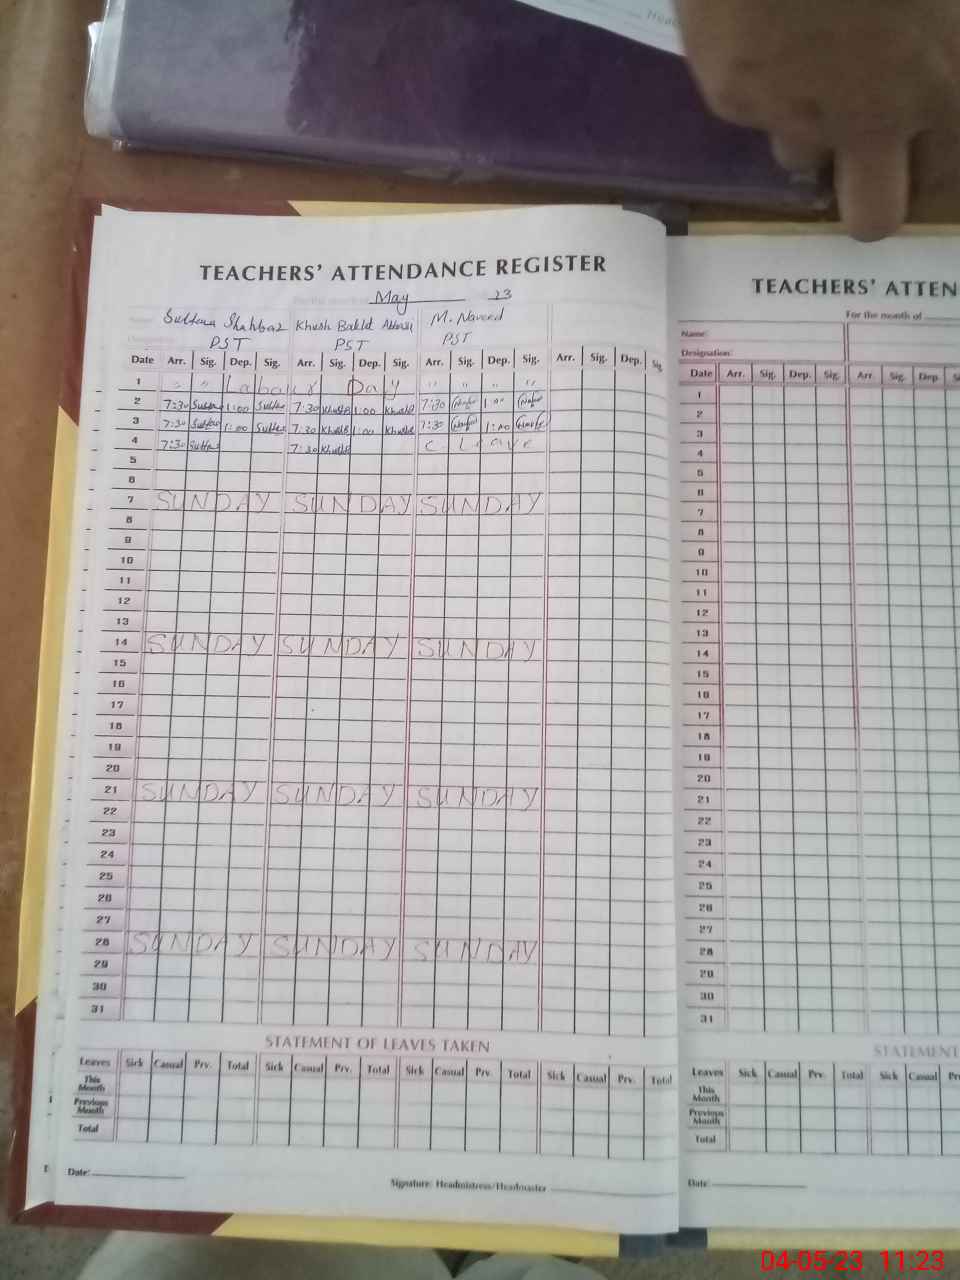 TEACHERS' ATTENDANCE REGISTER
May 23
Sultana Shahbaz Khush Bakht Abbasi M. Naveed
PST PST PST
Date Arr. Sig. Dep. Sig. Arr. Sig. Dep. Sig. Arr. Sig. Dep. Sig. Arr. Sig. Dep. Sig.
1 " " Labour Day " " " "
2 7:30 1:00 7:30 KhushB 1:00 KhushB 7:30 1:00
3 7:30 1:00 7:30 KhushB 1:00 KhushB 7:30 1:00
4 7:30 7:30 KhushB C. Leave
5
6
7 SUNDAY SUNDAY SUNDAY
8
9
10
11
12
13
14 SUNDAY SUNDAY SUNDAY
15
16
17
18
19
20
21 SUNDAY SUNDAY SUNDAY
22
23
24
25
26
27
28 SUNDAY SUNDAY SUNDAY
29
30
31
STATEMENT OF LEAVES TAKEN
Leaves Sick Casual Prv. Total Sick Casual Prv. Total Sick Casual Prv. Total Sick Casual Prv. Total
This Month
Previous Month
Total
Date:
Signature: Headmistress/Headmaster
TEACHERS' ATTEN
For the month of
Name:
Designation:
Date Arr. Sig. Dep. Sig. Arr. Sig. Dep. S
1
2
3
4
5
6
7
8
9
10
11
12
13
14
15
16
17
18
19
20
21
22
23
24
25
26
27
28
29
30
31
STATEMENT
Leaves Sick Casual Prv. Total Sick Casual Pr
This Month
Previous Month
Total
Date:
04-05-23 11:23